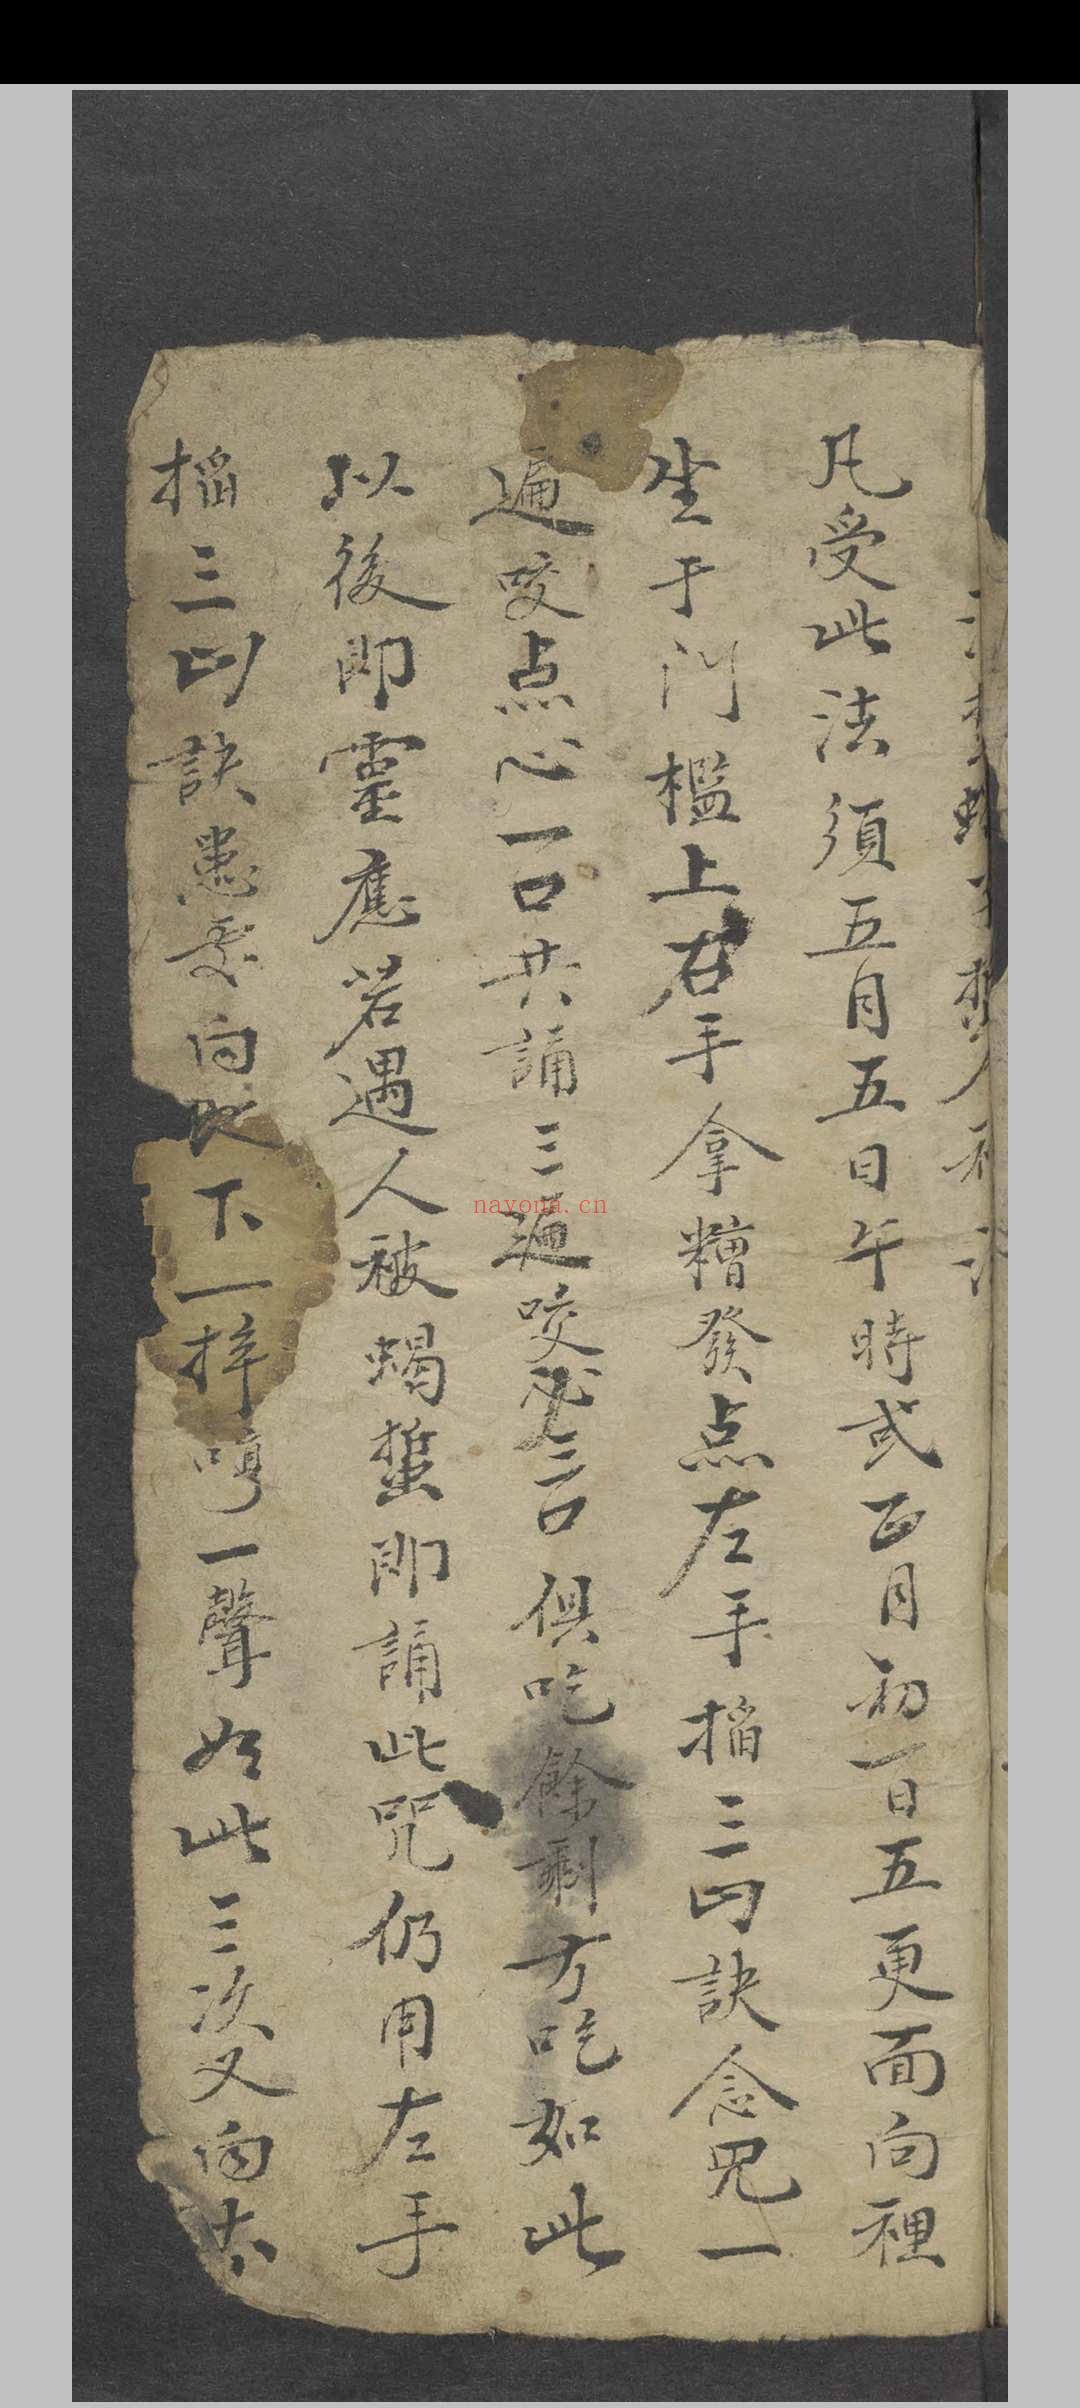 凡受此法須五月五日午時或正月初一日五更面向裡
坐于門檻上右手拿糟發点左手掐三山訣念咒一
遍咬点心一口共誦三遍咬三口俱吃餘剩方吃如此
以後即靈應若遇人被蝎蜇即誦此咒仍用左手
掐三山訣患處向地下一捽哼一聲如此三次又向太
nayona.cn